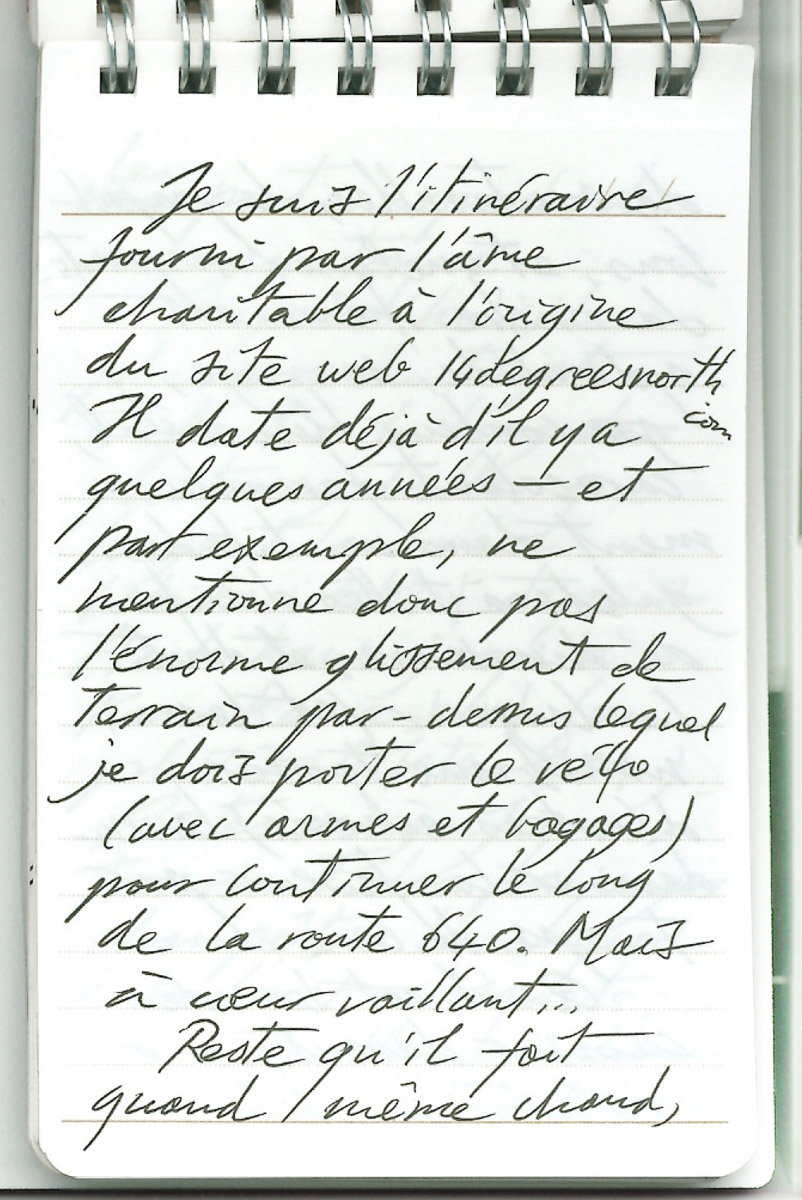 Je suis l'itinéraire
fourni par l'âme
charitable à l'origine
du site web 14degreesnorth
com
Il date déjà d'il y a
quelques années — et
par exemple, ne
mentionne donc pas
l'énorme glissement de
terrain par-dessus lequel
je dois porter le vélo
(avec armes et bagages)
pour continuer le long
de la route 640. Mais
à cœur vaillant...
Reste qu'il fait
quand même chaud,